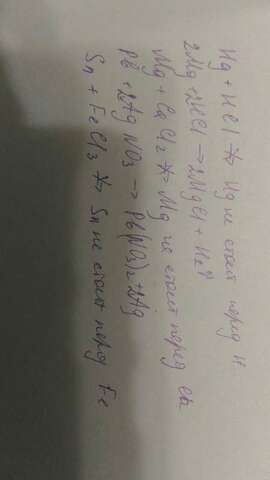 Hg + HCl ↛ Hg не стоит перед H
2Mg + 2HCl → 2MgCl + H2↑
Mg + CaCl2 ↛ Mg не стоит перед Ca
Pb + 2AgNO3 → Pb(NO3)2 + 2Ag
Sn + FeCl3 ↛ Sn не стоит перед Fe